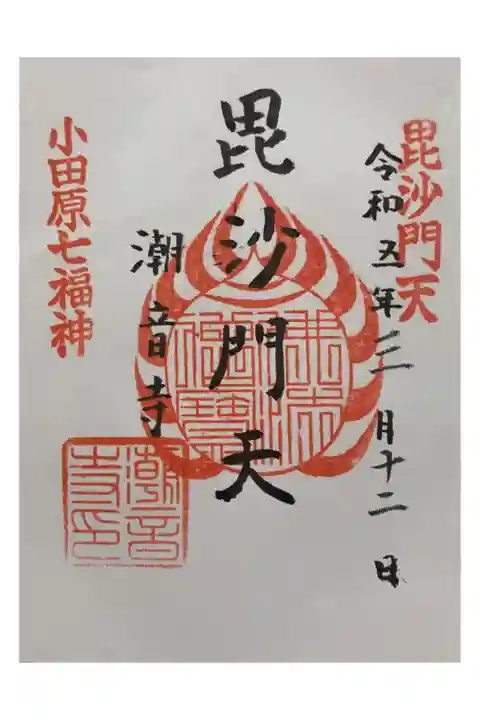 毘沙門天
令和五年三月十二日
毘沙門天
潮音寺
小田原七福神
潮音
寺印